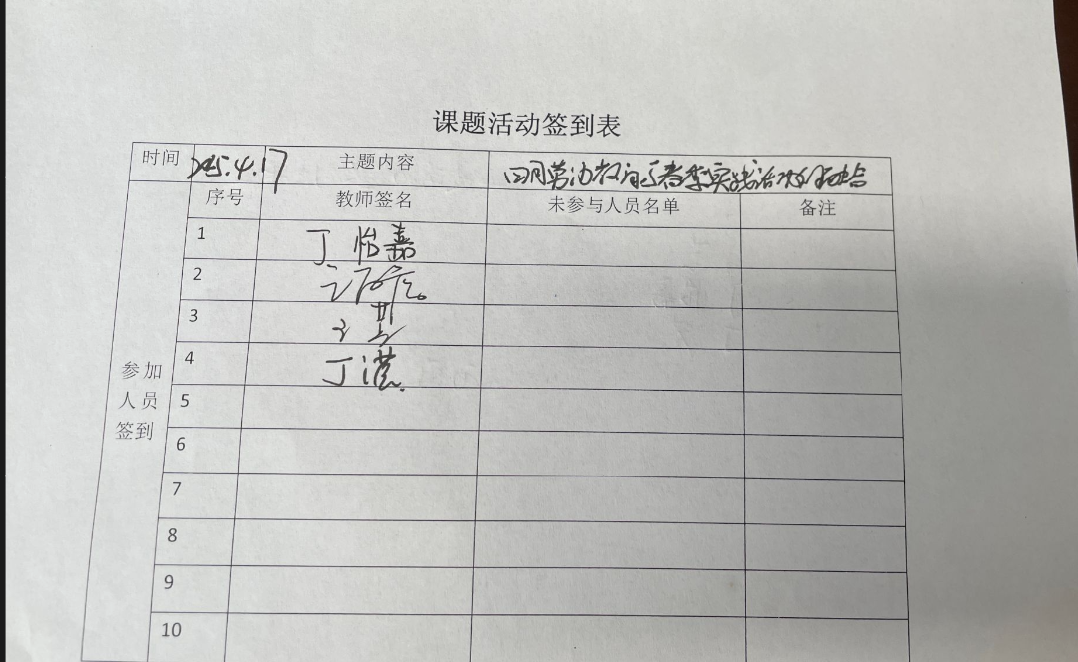 课题活动签到表
时间 2025.4.17 主题内容 四月劳动教育
序号 教师签名 未参与人员名单 备注
1 丁怡嘉
2
3
4 丁滢
参加人员签到
5
6
7
8
9
10